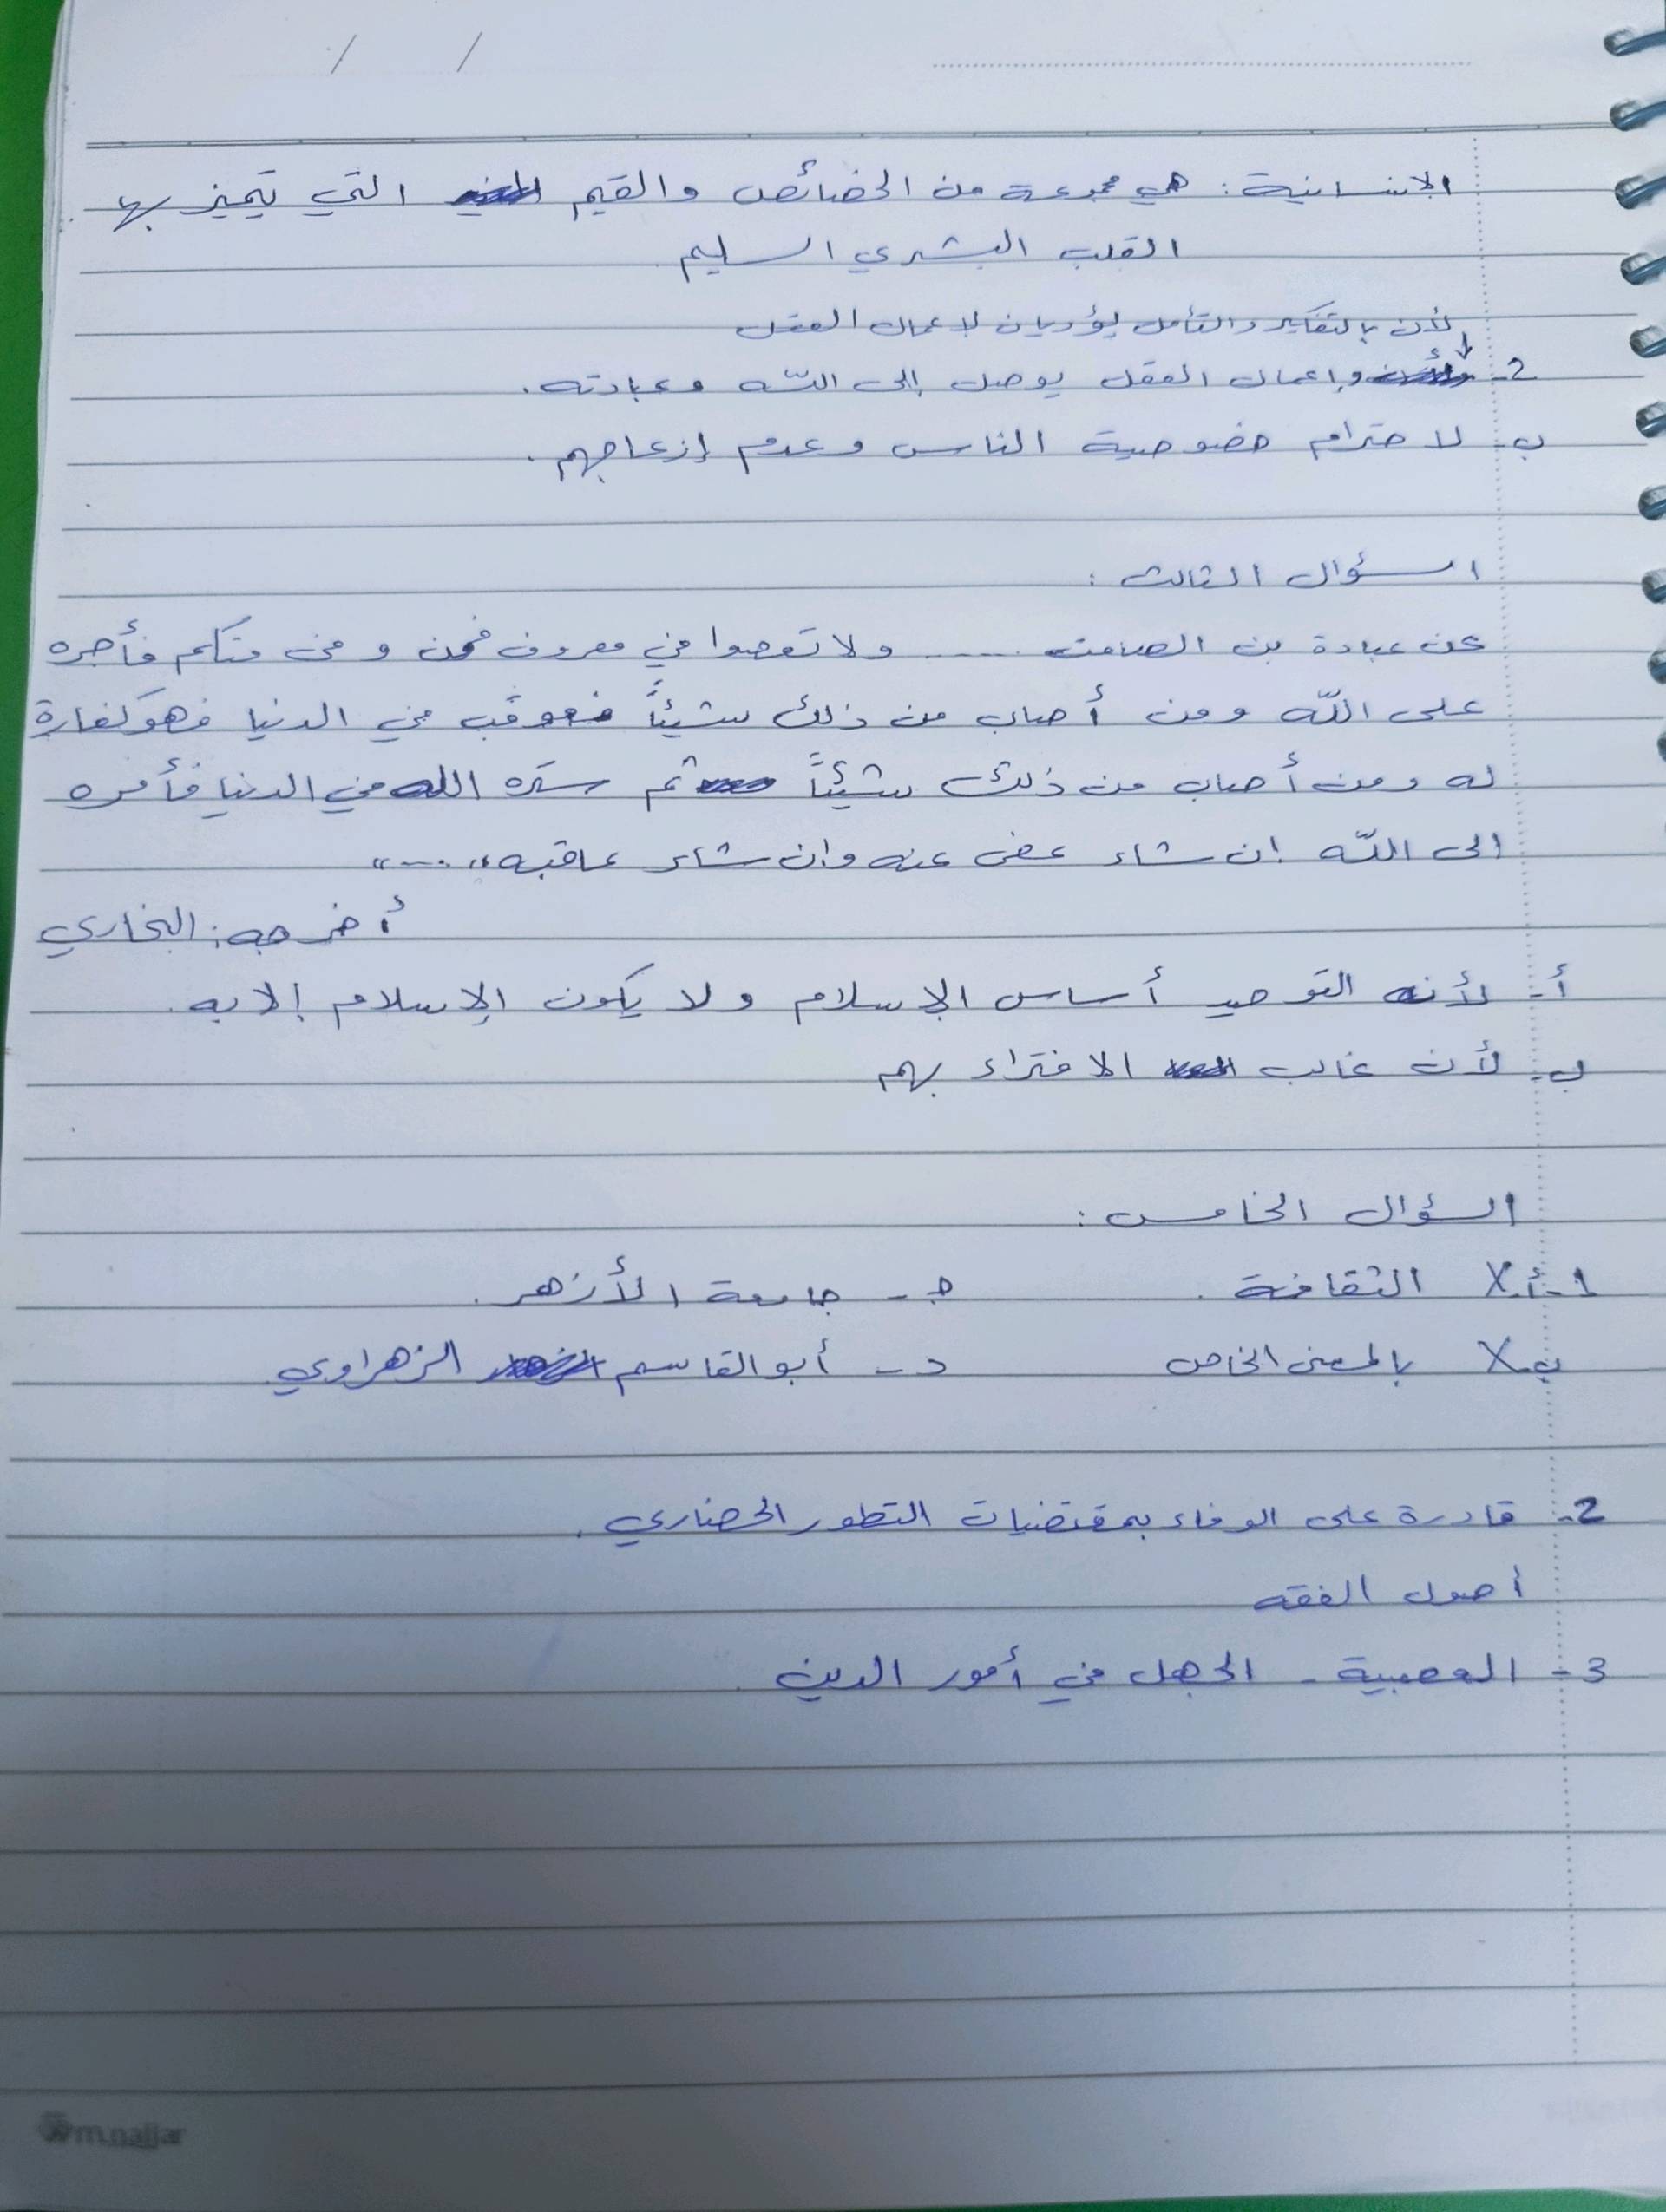 / /
الانسانية : هي مجموعة من الخصائص والقيم التي تتميز بها
القلب البشري السليم
لأن بالتفكير والتأمل يؤديان لاعمال العقل
2- وإعمال العقل يوصل إلى الله وعبادته .
ب- لاحترام خصوصية الناس وعدم إزعاجهم .
السؤال الثالث :
عن عبادة بن الصامت ..... ولا تعصوا في معروف فمن وفى منكم فأجره
على الله ومن أصاب من ذلك شيئاً فعوقب في الدنيا فهو كفارة
له ومن أصاب من ذلك شيئاً ثم ستره الله في الدنيا فأمره
الى الله إن شاء عفى عنه وان شاء عاقبه " .... "
أخرجه : البخاري
أ- لأنه التوحيد أساس الإسلام ولا يكون الإسلام إلا به .
ب- لأن غالب الافتراء بهم
السؤال الخامس :
1- أ- X الثقافة . ج- جامعة الأزهر .
ب- X بالمعنى الخاص د- أبو القاسم الزهراوي .
2- قادرة على الوفاء بمقتضيات التطور الحضاري .
أصول الفقه
3- العصبية - الجهل في أمور الدين .
m.najjar